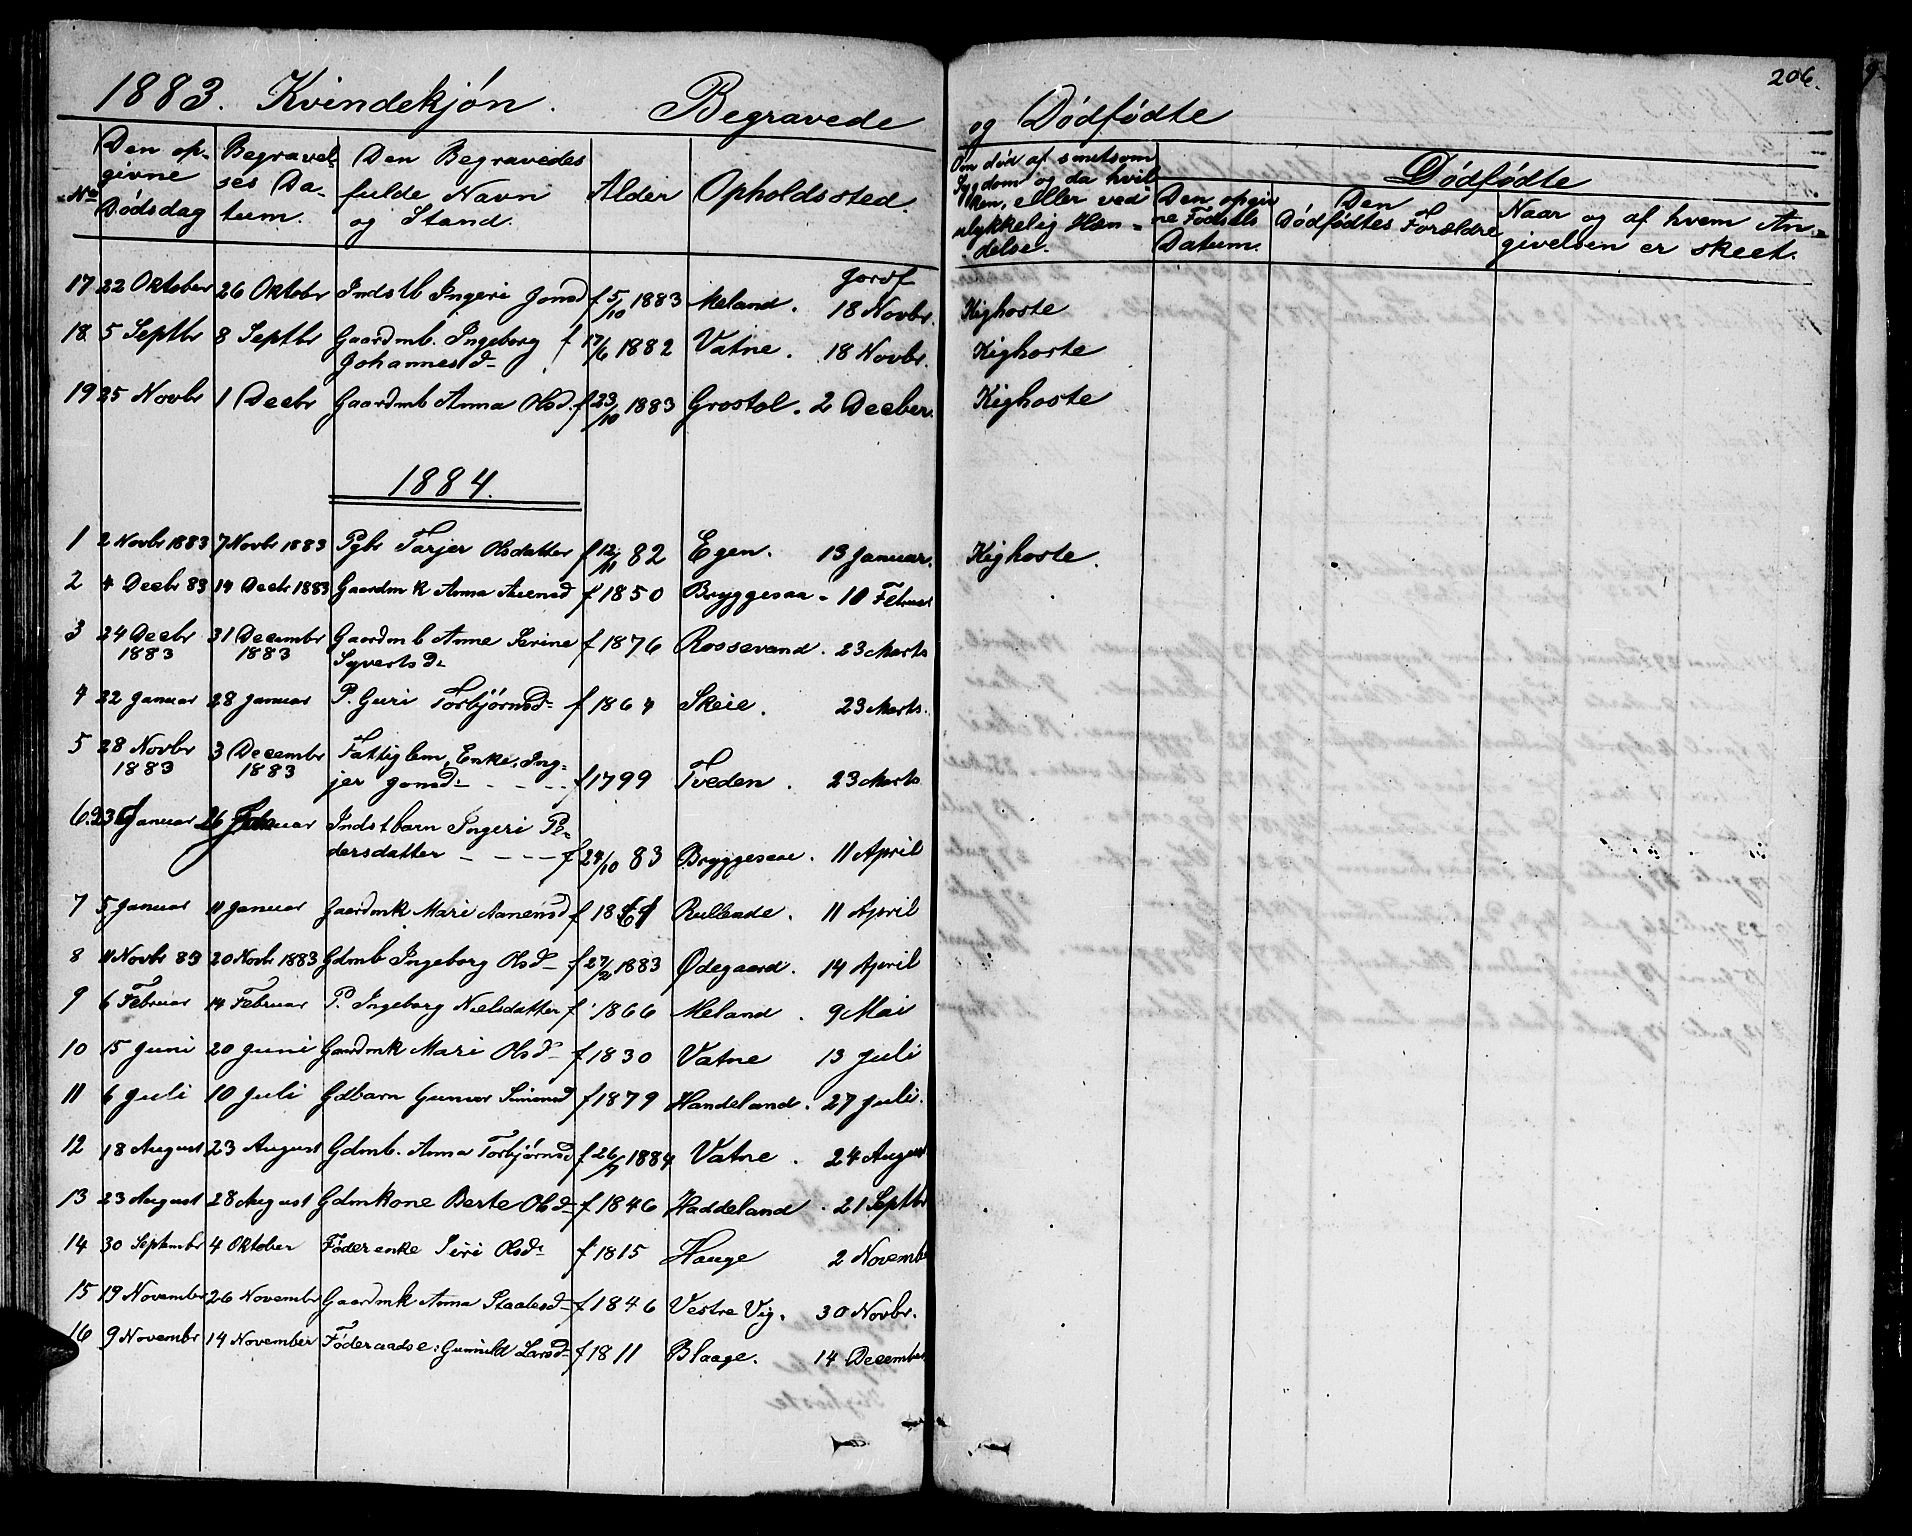 206.
1883. Kvindekjøn. Begravede og Dødfødte
No
Den opgivne Dødsdag
Begravelses Datum.
Den Begravedes fulde Navn og Stand.
Alder
Opholdssted.
Om død af smitsom Sygdom og da hvilken, eller ved ulykkelig Hændelse.
Dødfødte
Den opgivne Fødsels Datum.
Den Dødfødtes Forældre
Naar og af hvem Angivelsen er skeet.
Jordf
17 22 Oktober 26 Oktobr Indstb Ingeri Jonsd f 5/10 1883 Meland. 18 Novbr. Kighoste
18 5 Septbr 8 Septbr Gaardmb. Ingeborg f 17/6 1882 Vatne. 18 Novbr. Kighoste
Johannesd
19 25 Novbr 1 Decbr Gaardmb Anna Olsd. f 23/10 1883 Grostol. 2 Decber. Kighoste
1884.
1 2 Novbr 1883 7 Novbr 1883 Pgbr Tarjer Olsdatter f 12/11 82 Egen. 13 Januar. Kighoste.
2 4 Decbr 83 14 Decbr 1883 Gaardmk Anna f 1850 Bryggesaa - 10 Februar
3 24 Decbr 31 Decembr Gaardmb Anne Serine f 1876 Rossevand. 23 Marts
1883 1883 Syvertsd
4 22 Januar 28 Januar P. Guri Torbjørnsd f 1864 Skeie. 23 Marts.
5 28 Novbr 3 Decembr Fattiglem, Enke, Ing-
1883 1883 jer Jonsd - - - f 1799 Tveden. 23 Marts
6. 23 Januar 26 Januar Indstbarn Ingeri Pe-
dersdatter - - - f 24/10 83 Bryggesaa. 11 April
7 5 Januar 11 Januar Gaardmk Mari Aanensd f Rulleade. 11 April
8 11 Novbr 83 20 Novbr 1883 Gdmb Ingeborg Olsd f 27/2 1883 Ødegaard. 14 April
9 6 Februar 14 Februar P. Ingeborg Nielsdatter f 1866 Meland. 9 Mai
10 15 Juni 20 Juni Gaardmk Mari Olsd f 1830 Vatne 13 Juli
11 6 Juli 10 Juli Gdbarn Gunvor Simonsd f 1879 Handeland. 27 Juli.
12 18 August 23 August Gdmb. Anna Torbjørnsd f 26/7 1884 Vatne. 24 August
13 23 August 28 August Gdmkone Berte Olsd f 1846 Haddeland. 21 Septbr
14 30 Septembr 4 Oktober Føderenke Siri Olsd f 1815 Hauge 2 Novemb
15 19 November 26 Novembr Gaardmk Anna Staalesd f 1846 Vestre Vig. 30 Novbr.
16 9 Novembr 14 November Føderaadse: Gunnild Larsd f 1811 Blaage. 14 December